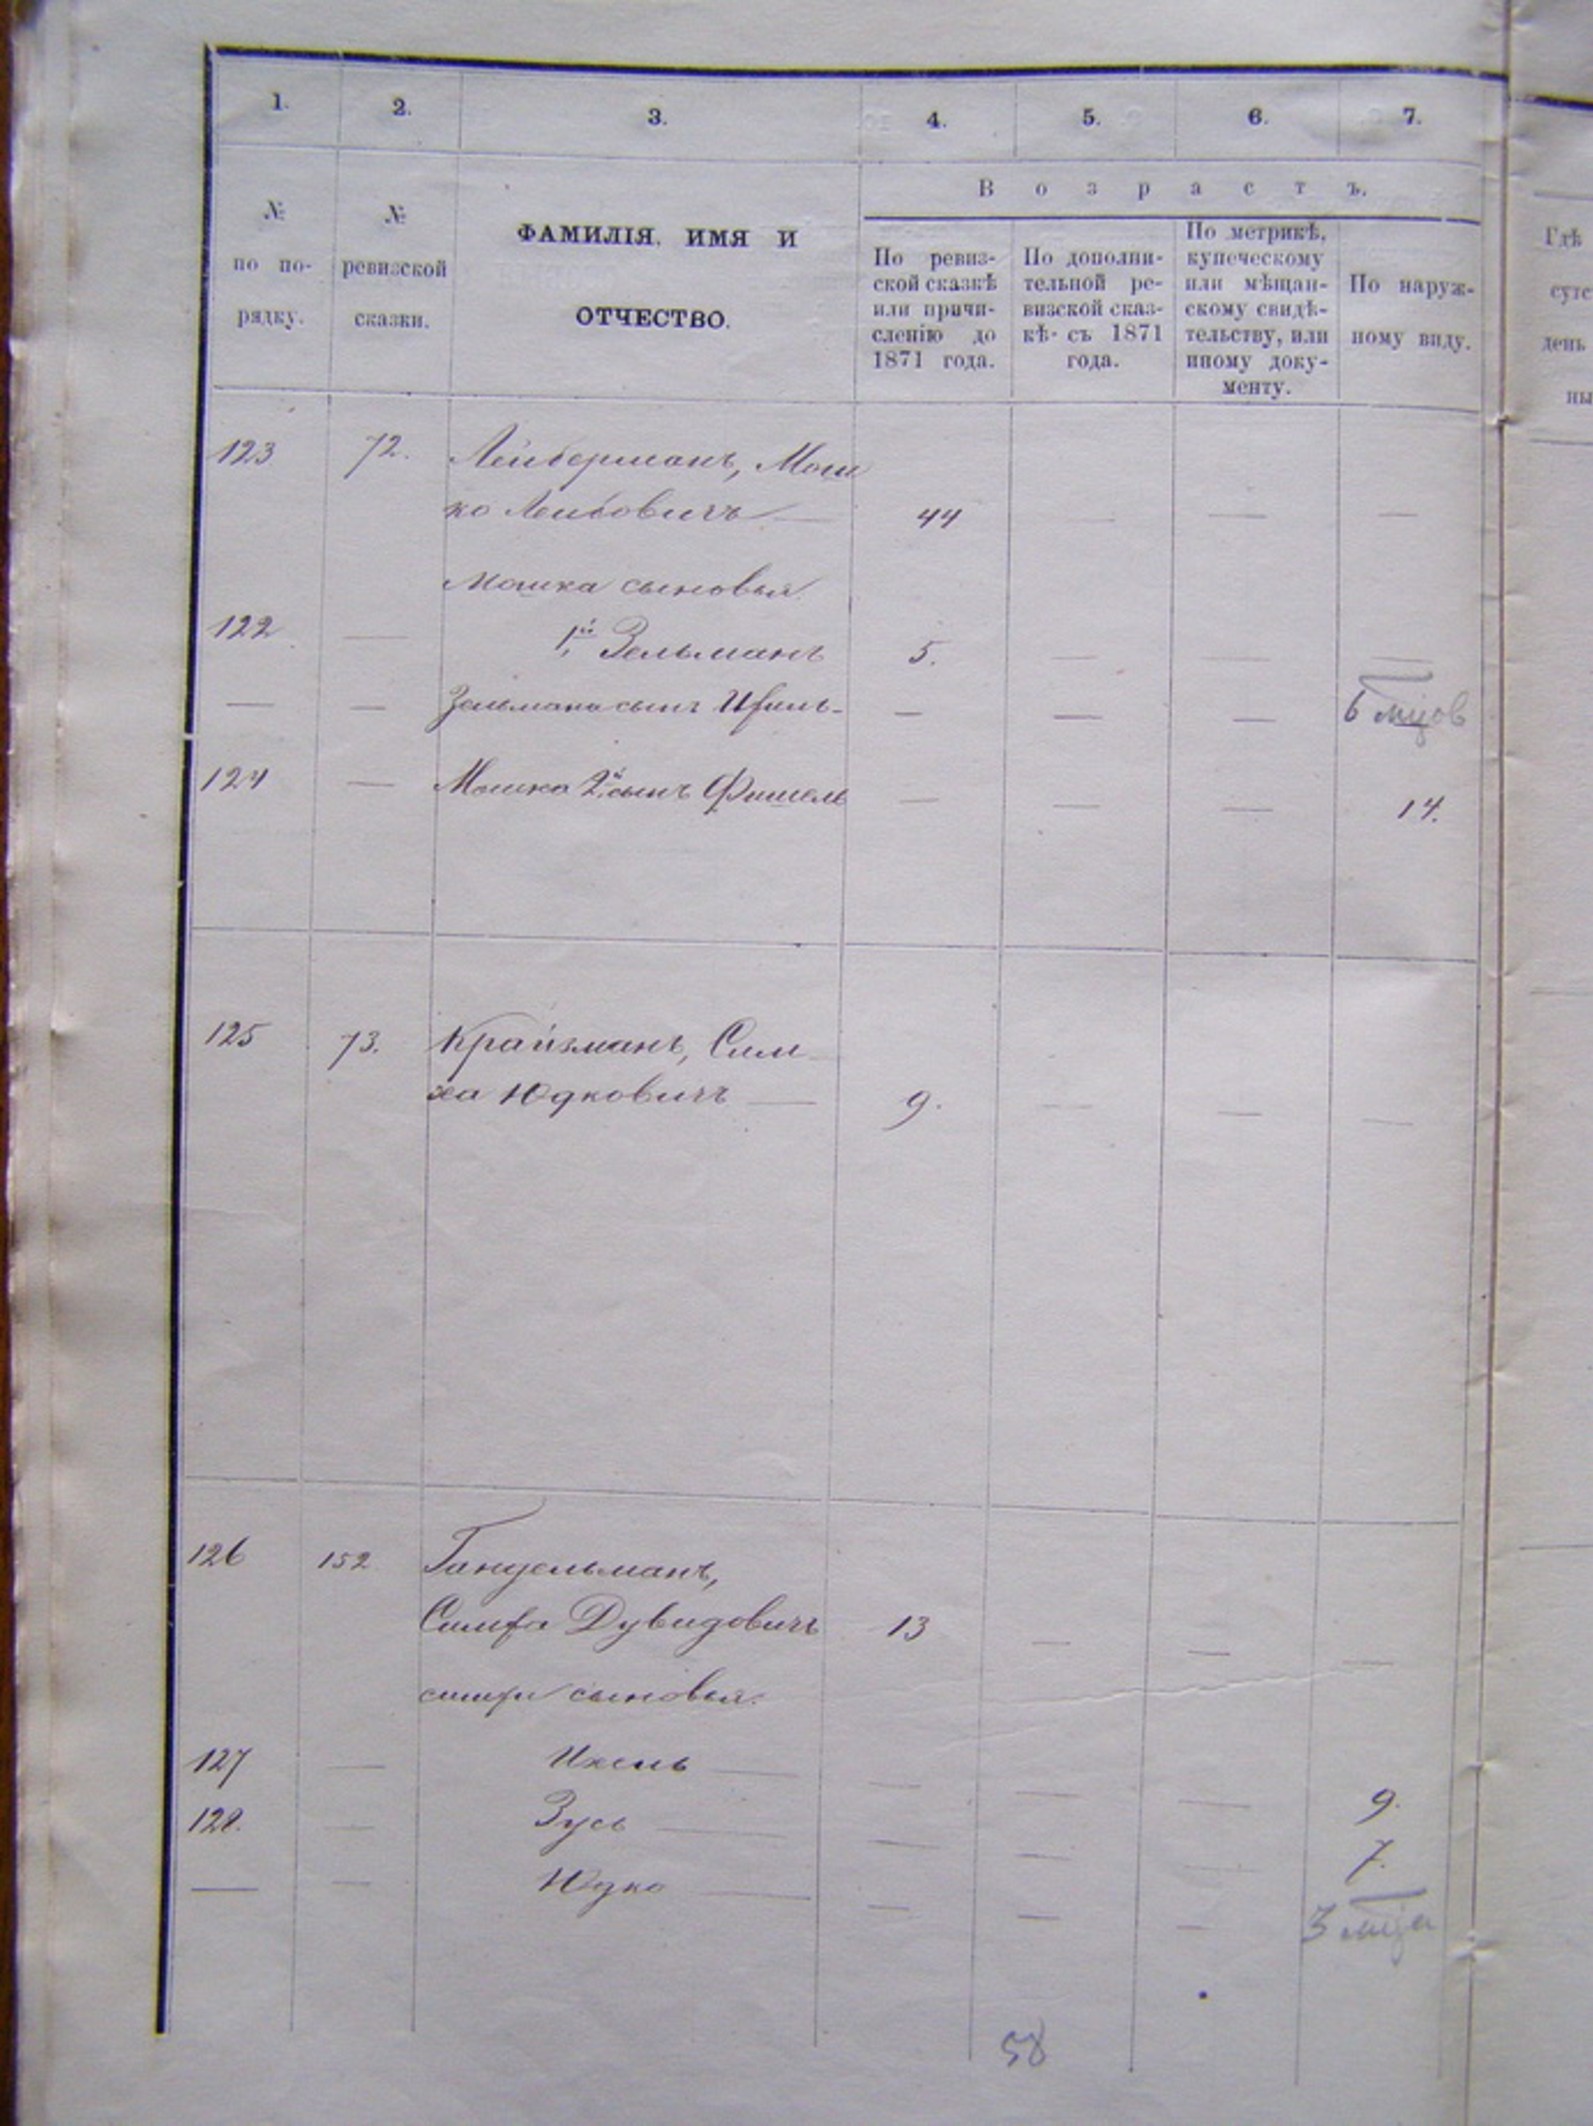 1. 2. 3. 4. 5. 6. 7.
№ по по-рядку.
№ ревизской сказки.
ФАМИЛІЯ, ИМЯ И
ОТЧЕСТВО.
Возрастъ.
По ревиз-
ской сказкѣ
или причи-
сленію до
1871 года.
По дополни-
тельной ре-
визской сказ-
кѣ съ 1871
года.
По метрикѣ,
купеческому
или мѣщан-
скому свидѣ-
тельству, или
иному доку-
менту.
По наруж-
ному виду.
Гдѣ
сутс
день
ны
123 72. Лейберманъ, Мош
ко Лейбовичъ — 44 — — —
Мошка сыновья.
122 — 1й Зельманъ 5. — — —
— — Зельмана сынъ — — — 6 мцов
124 — Мошка 2й сынъ Фишель — — — 14.
125 73. Крайзманъ, Сим
ха Юдковичъ — 9. — — —
126 152 Гандельманъ,
Симха Дувидовичъ 13 — — —
симхи сыновья.
127 — Ихель — — — — 9.
128. — Зусь — — — — 7.
— — Юдко — — — — 3 мца
58